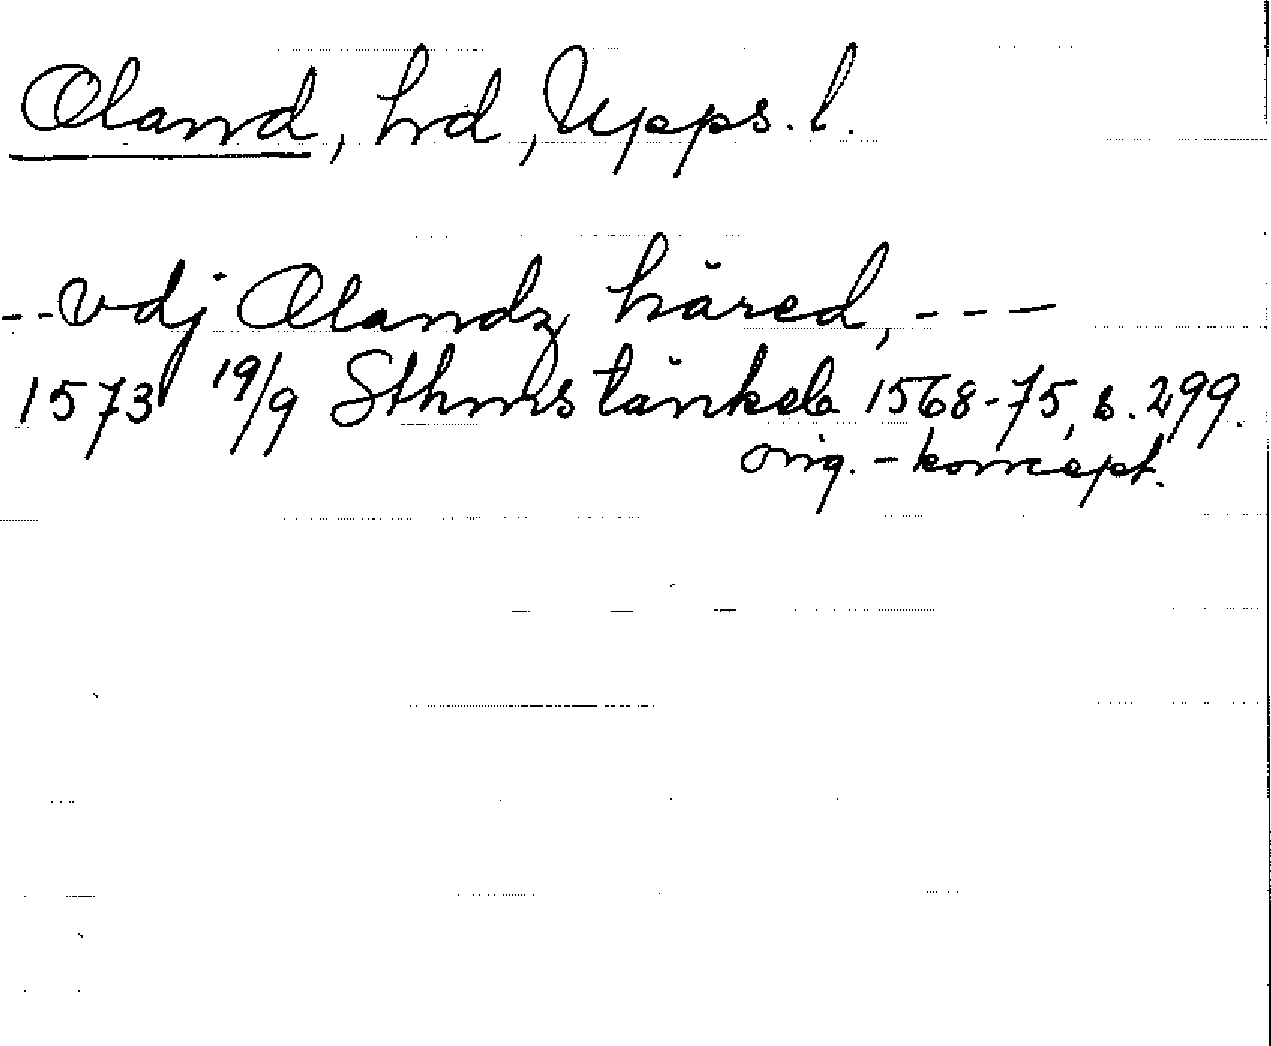 Oland, hrd, Upps. l.
-- vdj Olandz härad, ---
1573 19/9 Sthms tänkeb 1568-75, s. 299.
orig. - koncept.